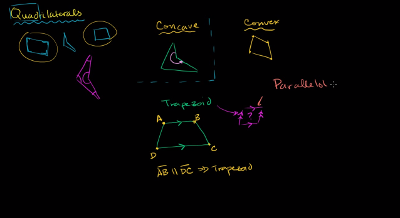 Quadrilaterals
Concave
Convex
Parallelo
Trapezoid
A B
D C
AB || DC ⇒ Trapezoid